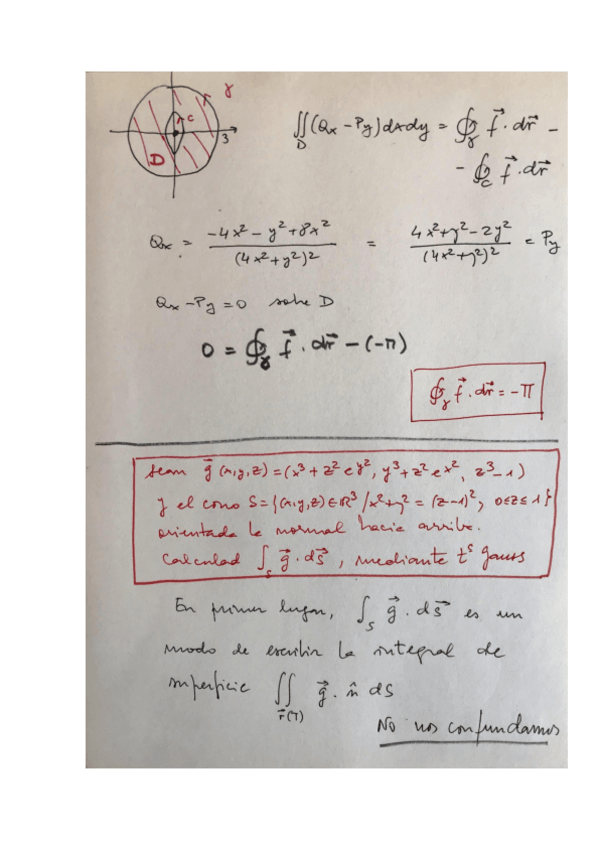 γ
c
D
3
∬_D (Qx - Py) dx dy = ∮_γ f⃗ · dr⃗ -
- ∮_c f⃗ · dr⃗
Qx = (-4x² - y² + 8x²) / (4x² + y²)² = (4x² + y² - 2y²) / (4x² + y²)² = Py
Qx - Py = 0 sobre D
0 = ∮_γ f⃗ · dr⃗ - (-π)
∮_γ f⃗ · dr⃗ = -π
Sean g⃗(x,y,z) = (x³ + z² e^y², y³ + z² e^x², z³ - 1)
y el cono S = {(x,y,z) ∈ ℝ³ / x² + y² = (z-1)², 0 ≤ z ≤ 1}
orientada la normal hacia arriba.
Calculad ∫_S g⃗ · ds⃗, mediante tª Gauss
En primer lugar, ∫_S g⃗ · ds⃗ es un
modo de escribir la integral de
superficie ∬_r⃗(T) g⃗ · n̂ dS
No nos confundamos